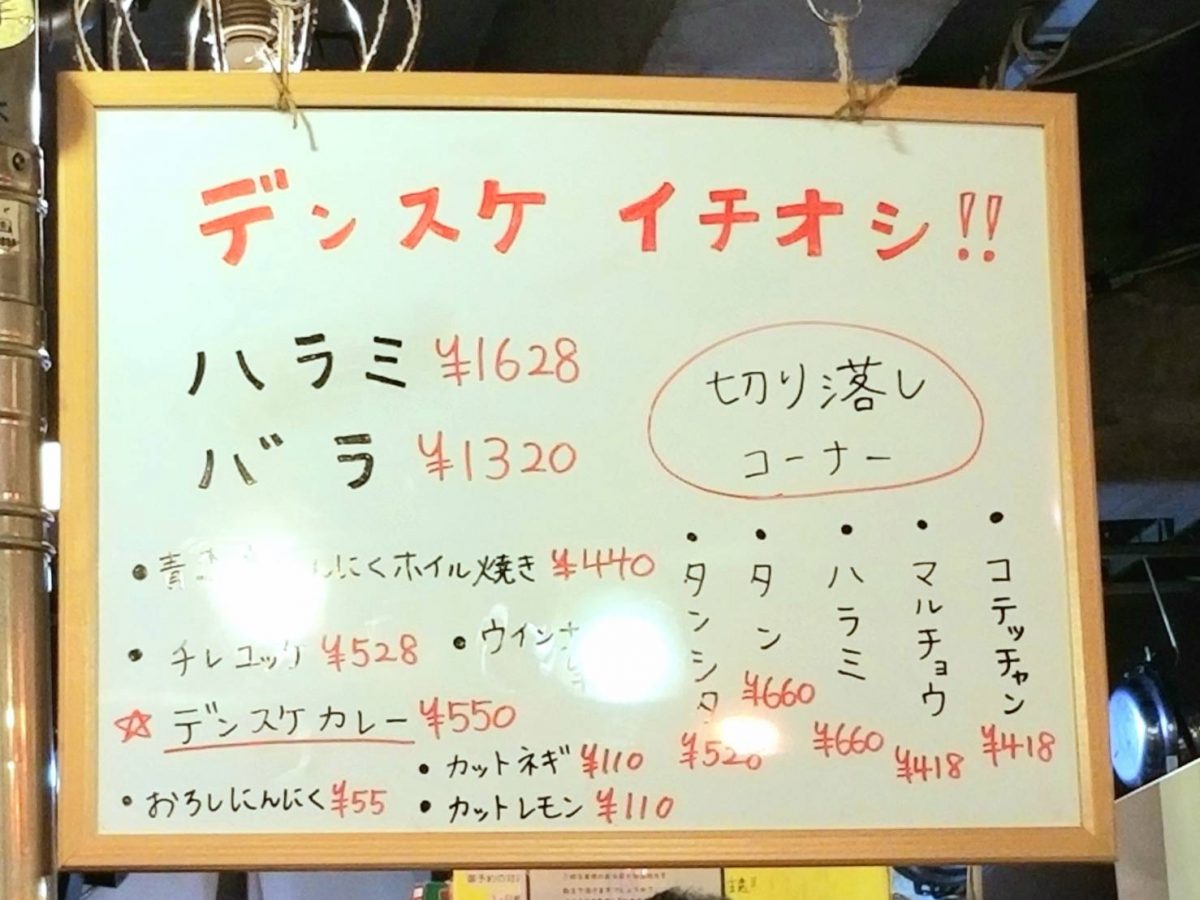 デンスケ イチオシ!!
ハラミ ¥1628
バラ ¥1320
・青 にくホイル焼き ¥440
・チレユッケ ¥528
・ウインナー
☆デンスケカレー ¥550
・カットネギ ¥110
・おろしにんにく ¥55
・カットレモン ¥110
切り落し
コーナー
・コテッチャン ¥418
・マルチョウ ¥418
・ハラミ ¥660
・タン ¥660
・タンシタ ¥528